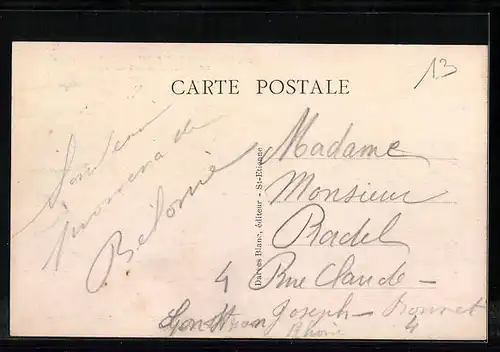 13
CARTE POSTALE
Souvenir
promena de
Darres Blanc, éditeur - St-Etienne
Madame
Monsieur
Radel
Rue Claude -
4
Joseph - Bonnet
4
Lyon
Rhône